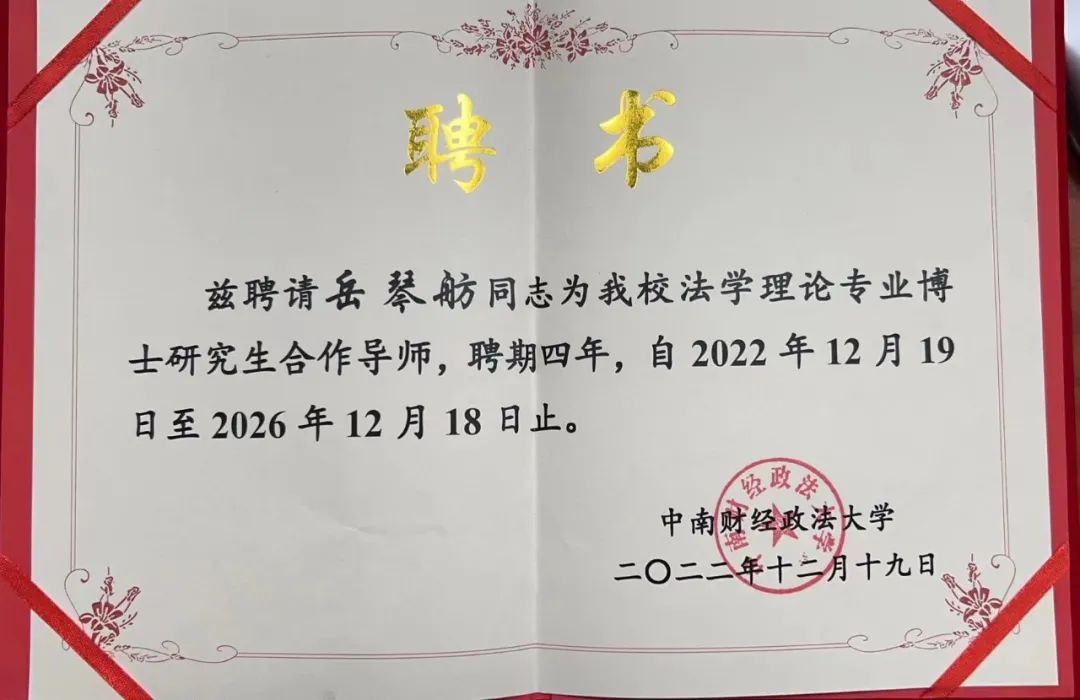 聘书
兹聘请岳琴舫同志为我校法学理论专业博
士研究生合作导师，聘期四年，自2022年12月19
日至2026年12月18日止。
中南财经政法大学
二〇二二年十二月十九日